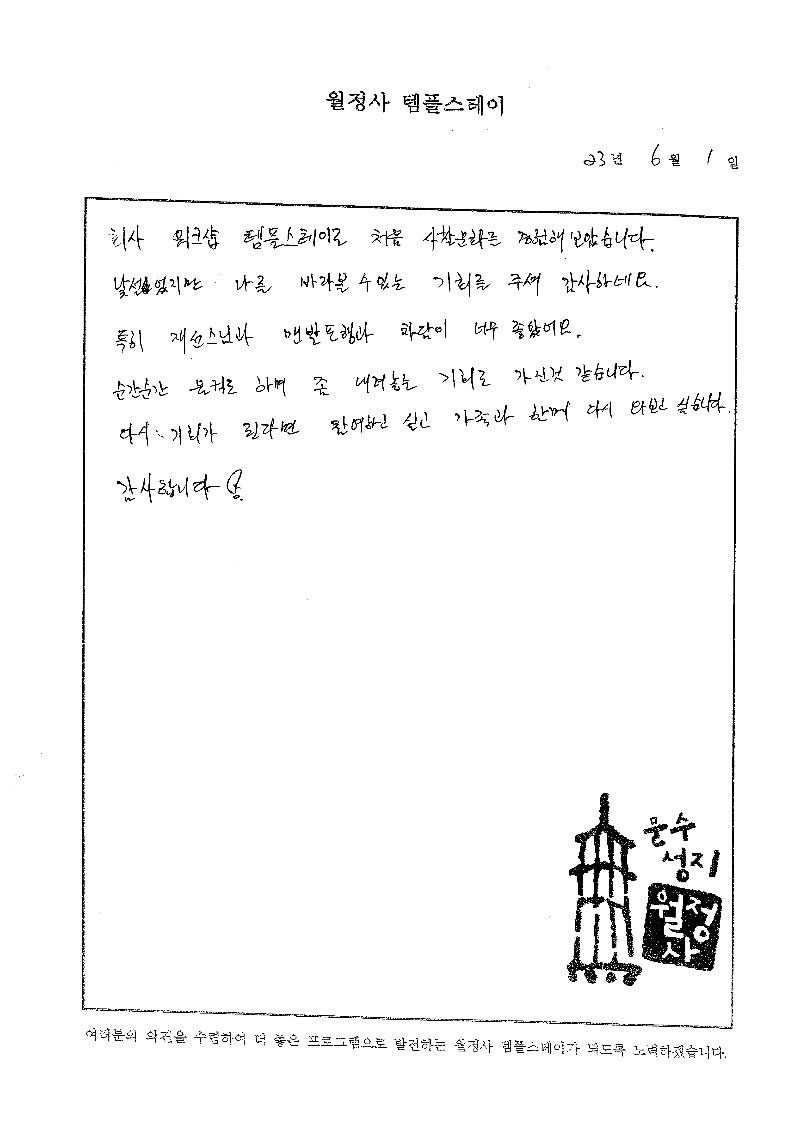 월정사 템플스테이
23년 6월 1일
회사 워크샵 템플스테이로 처음 사찰문화를 경험해 보았습니다.
낯설었지만 나를 바라볼 수 있는 기회를 주셔 감사하네요.
특히 스님과 맨발포행과 차담이 너무 좋았어요.
순간순간 하며 좀 내려놓는 기회를 가진것 같습니다.
다시 기회가 된다면 참여하고 싶고 가족과 함께 다시 와보고 싶습니다.
감사합니다
문수
성지
월정
사
여러분의 의견을 수렴하여 더 좋은 프로그램으로 발전하는 월정사 템플스테이가 되도록 노력하겠습니다.